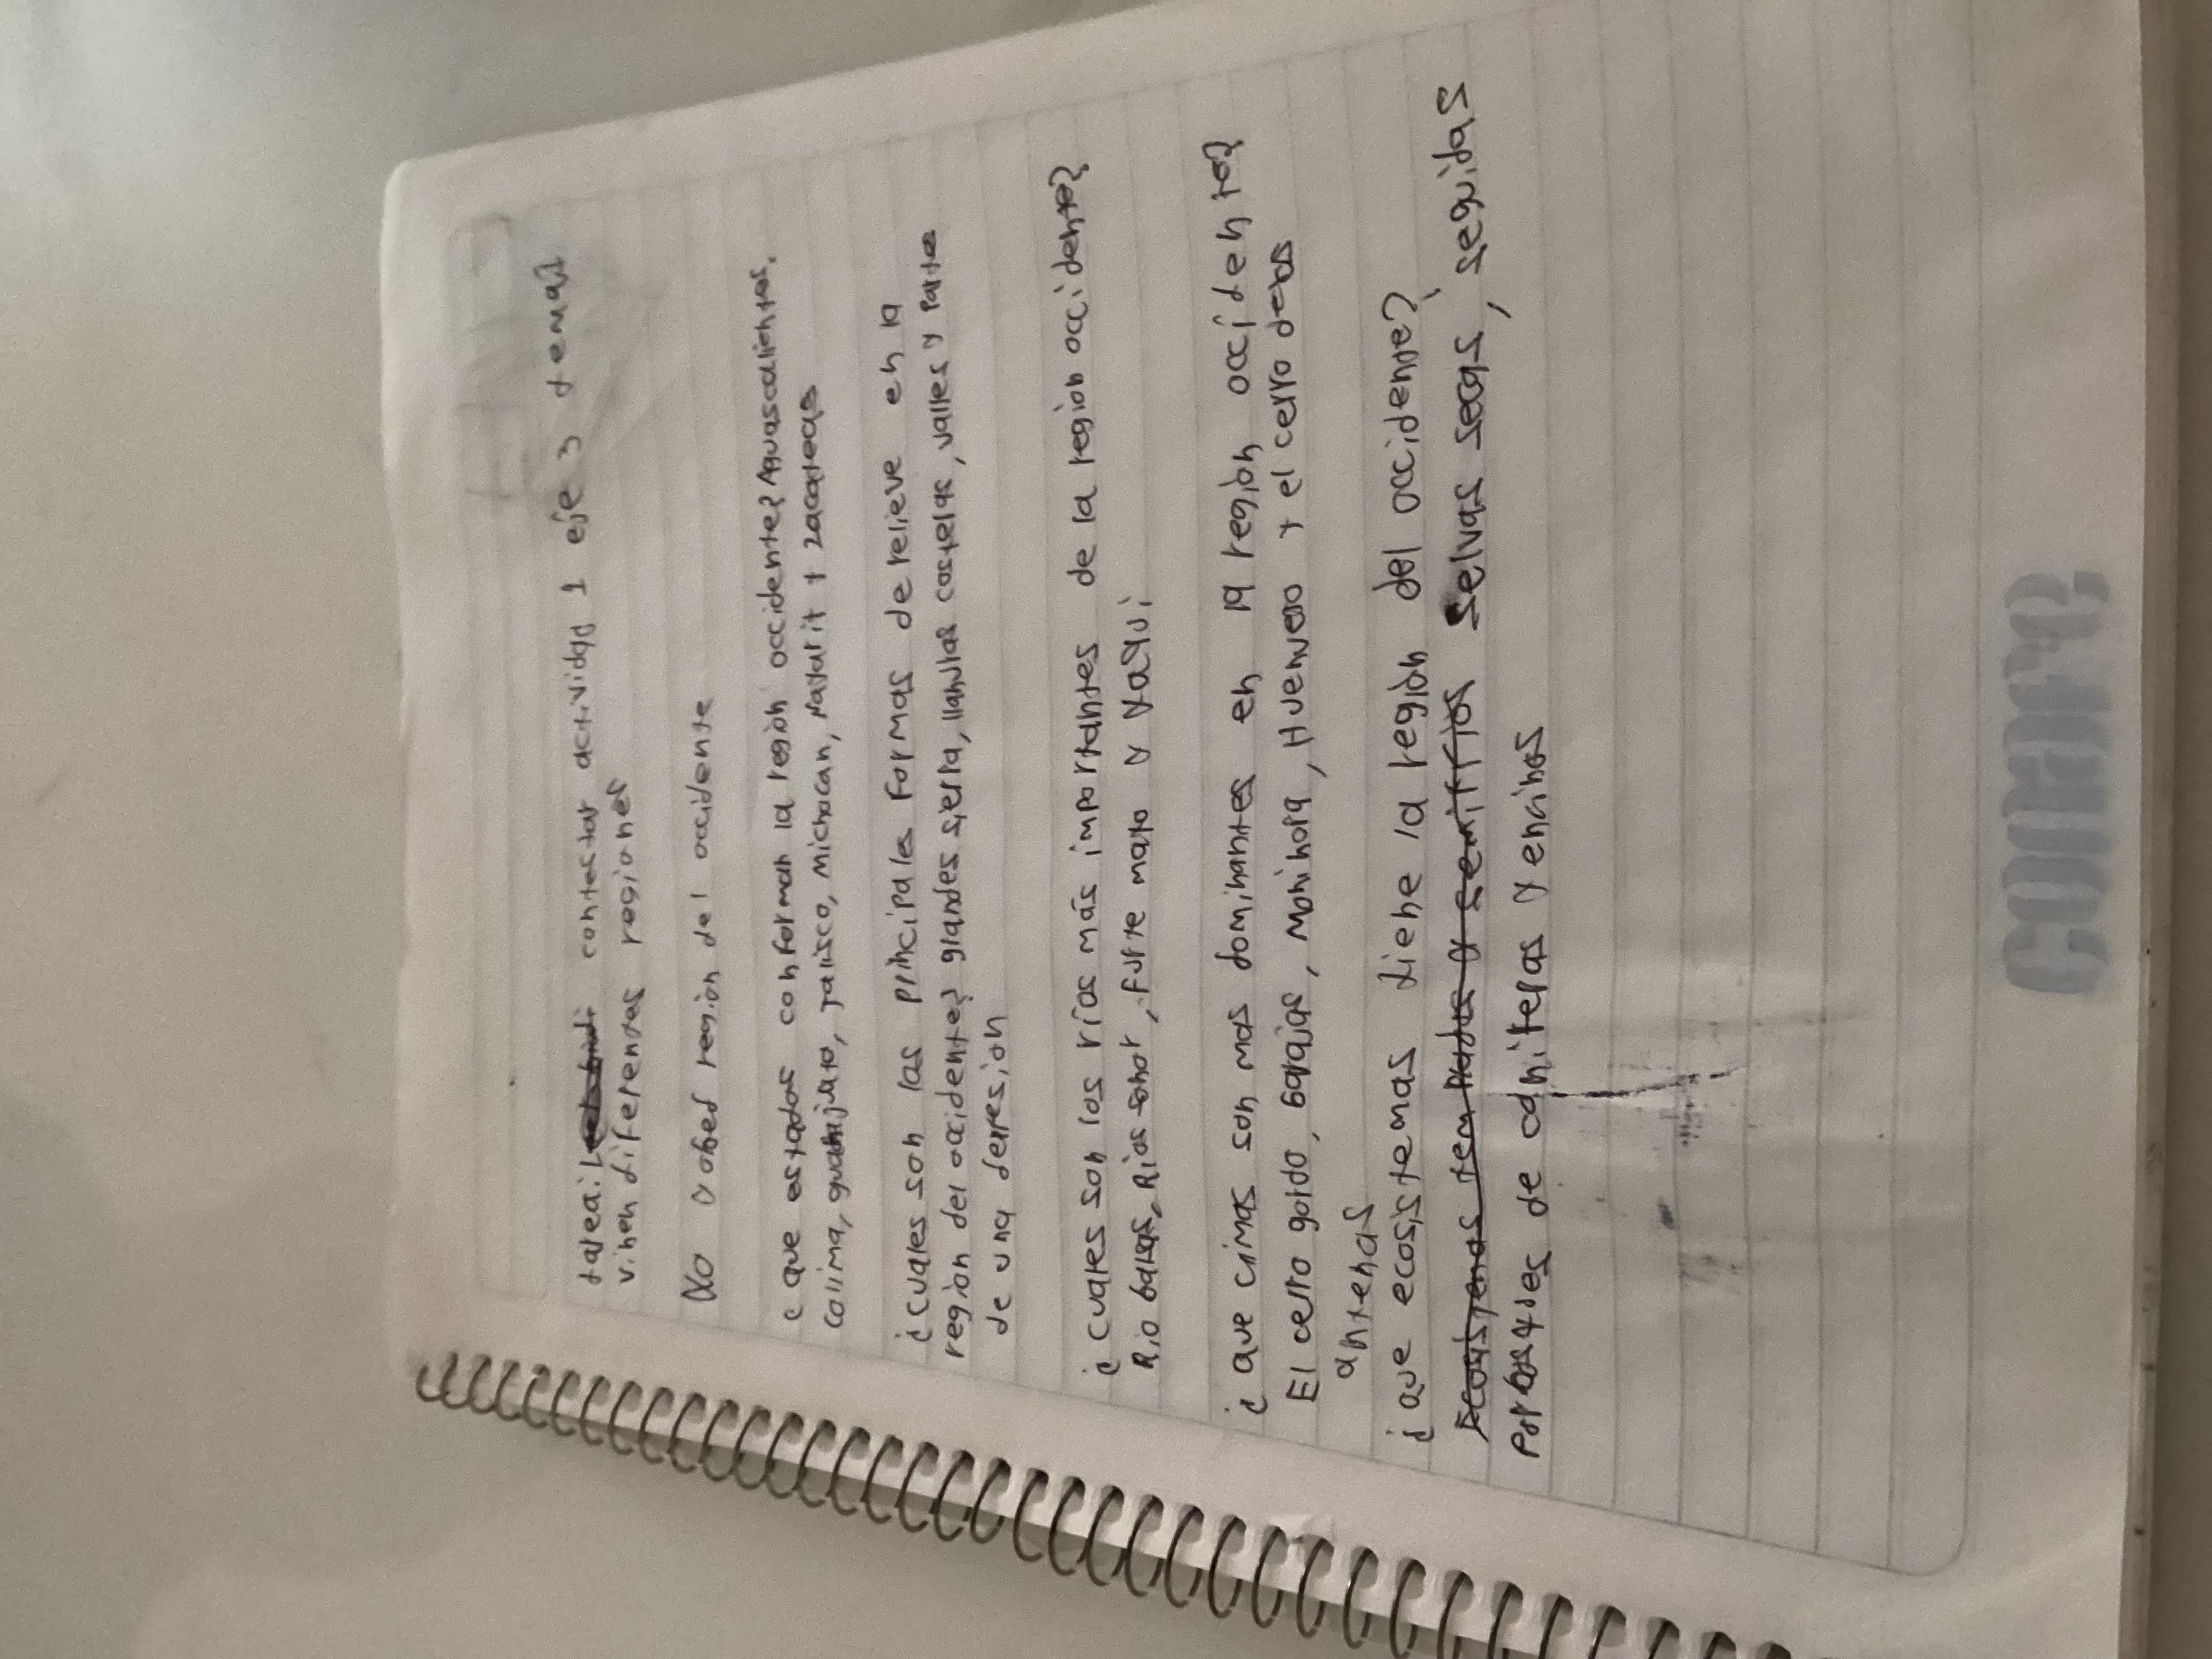 tarea: contestar actividad 1 eje 3 tema 1
vinen diferentes regiones
Yo obed region del occidente
¿que estados conforman la región occidente? Aguascalientes,
colima, guanjuato, jalisco, michocan, Nayarit y zacatecas
¿cuales son las principales formas de relieve en la
region del occidente? grandes sierra, llanuras costeras, valles y partes
de una depresión
¿cuales son los ríos más importantes de la region occidente?
Rio balsas, Rios sonor, furte mayo y Yaqui
¿que cimas son mas dominantes en la región occidente?
El cerro gordo, barajas, Mohinora, Huenueo y el cerro de las
antenas
¿que ecosistemas tiene la región del occidente?
selvas secas, seguidas
por de coniferas y encinos